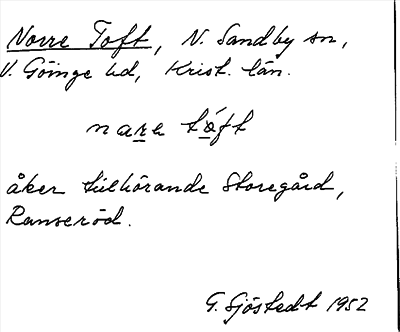 Norre Toft, N. Sandby sn,
V. Göinge hd, Krist. län.
nare táft
åker tillhörande Storegård,
Ranseröd.
G. Sjöstedt 1952